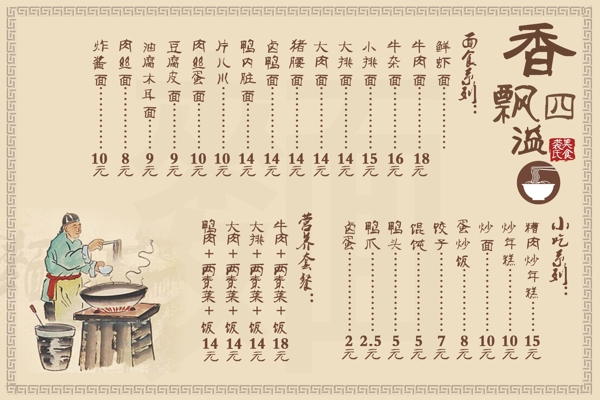 香飘四溢
美食
面食系列：
鲜虾面……………
牛肉面……………18元
牛杂面……………16元
小排面……………15元
大排面……………14元
大肉面……………14元
猪腰面……………14元
卤鸭面……………14元
鸭内脏面…………14元
片儿川……………10元
肉丝蛋面…………10元
豆腐皮面…………9元
油腐木耳面………9元
肉丝面……………8元
炸酱面……………10元
小吃系列：
糟肉炒年糕………15元
炒年糕……………10元
炒面………………10元
蛋炒饭……………8元
饺子………………7元
馄饨………………5元
鸭头………………5元
鸭爪………………2.5元
卤蛋………………2元
营养套餐：
牛肉+两素菜+饭 18元
大排+两素菜+饭 14元
大肉+两素菜+饭 14元
鸭肉+两素菜+饭 14元